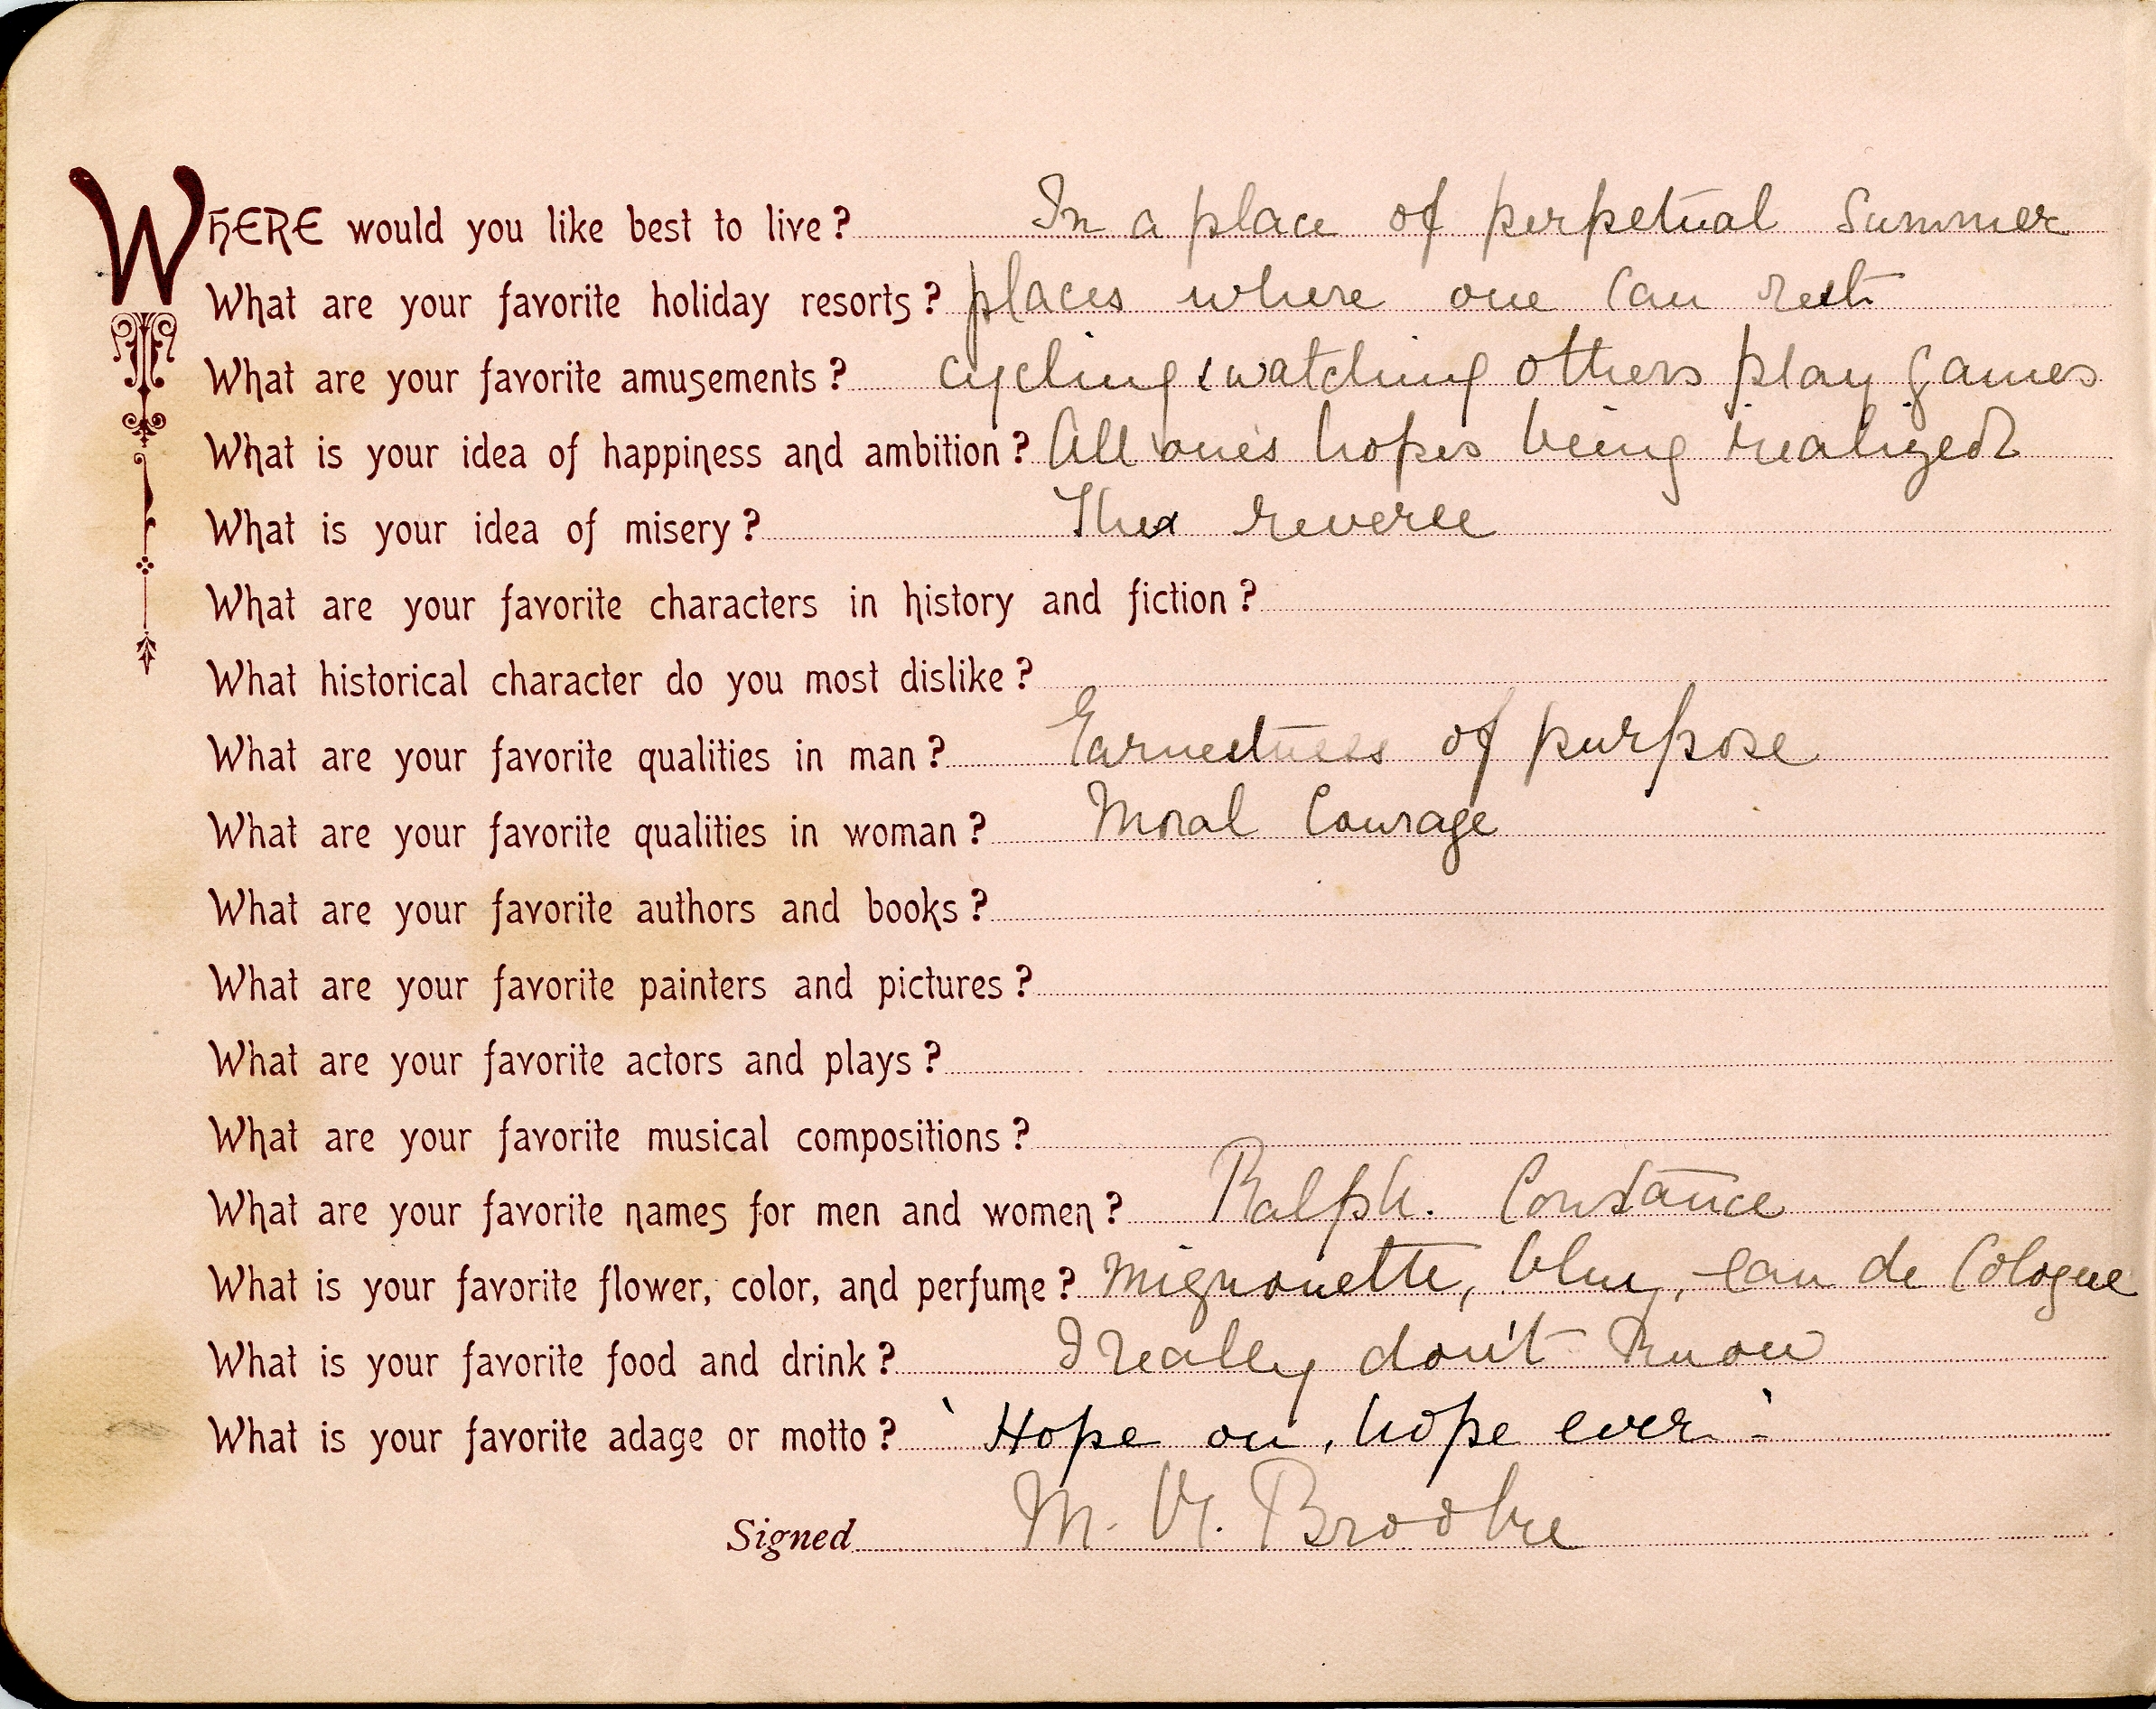 WHERE would you like best to live? In a place of perpetual Summer
What are your favorite holiday resorts? places where one can rest
What are your favorite amusements? cycling & watching others play games
What is your idea of happiness and ambition? All one's hopes being realized
What is your idea of misery? The reverse
What are your favorite characters in history and fiction?
What historical character do you most dislike?
What are your favorite qualities in man? Earnestness of purpose
What are your favorite qualities in woman? Moral Courage
What are your favorite authors and books?
What are your favorite painters and pictures?
What are your favorite actors and plays?
What are your favorite musical compositions?
What are your favorite names for men and women? Ralph. Constance
What is your favorite flower, color, and perfume? Mignonette, blue, eau de Cologne
What is your favorite food and drink? I really don't know
What is your favorite adage or motto? 'Hope on, hope ever-'
Signed M. Brooke